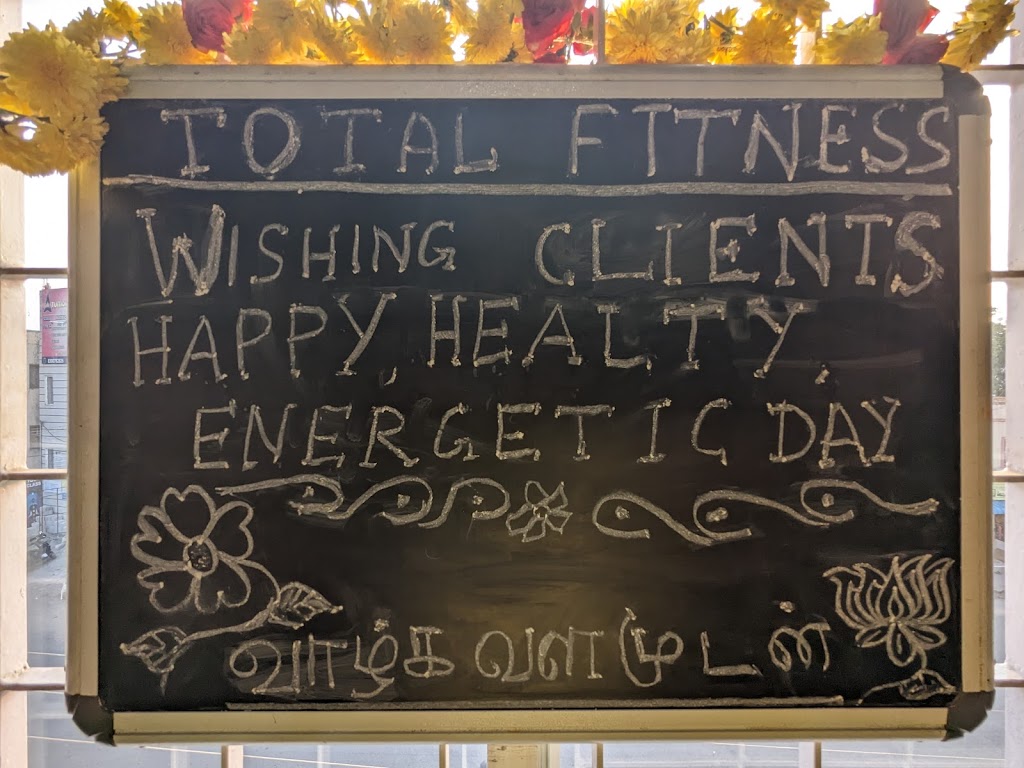 TOTAL FITNESS
WISHING CLIENTS
HAPPY, HEALTY,
ENERGETIC DAY
வாழ்க வளமுடன்